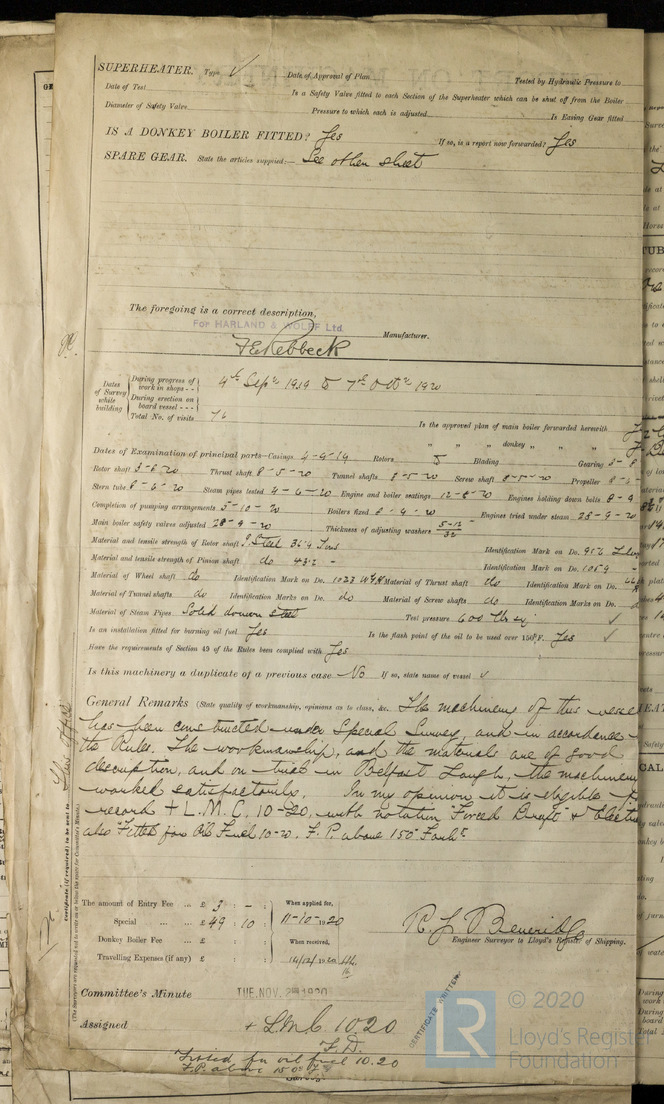 SUPERHEATER. Type ✓ Date of Approval of Plan Tested by Hydraulic Pressure to
Date of Test Is a Safety Valve fitted to each Section of the Superheater which can be shut off from the Boiler
Diameter of Safety Valve Pressure to which each is adjusted Is Easing Gear fitted
IS A DONKEY BOILER FITTED? Yes If so, is a report now forwarded? Yes
SPARE GEAR. State the articles supplied:— See other sheet
The foregoing is a correct description,
For HARLAND & WOLFF Ltd.
F E Rebbeck Manufacturer.
Dates of Survey while building
During progress of work in shops - - 4th Septr 1919 to 7th Octr 1920
During erection on board vessel - - -
Total No. of visits 76
Is the approved plan of main boiler forwarded herewith
" " " donkey " " "
Dates of Examination of principal parts—Casings 4-9-19 Rotors Blading Gearing
Rotor shaft 3-8-20 Thrust shaft 8-5-20 Tunnel shafts 8-5-20 Screw shaft 8-5-20 Propeller
Stern tube 8-6-20 Steam pipes tested 4-6-20 Engine and boiler seatings 12-8-20 Engines holding down bolts
Completion of pumping arrangements 5-10-20 Boilers fixed 8-9-20 Engines tried under steam 28-9-20
Main boiler safety valves adjusted 28-9-20 Thickness of adjusting washers 5-12/32
Material and tensile strength of Rotor shaft S. Steel 36.4 Tons Identification Mark on Do. 956
Material and tensile strength of Pinion shaft do 43.2 - Identification Mark on Do. 1059
Material of Wheel shaft do Identification Mark on Do. 1023 Material of Thrust shaft do Identification Mark on Do.
Material of Tunnel shafts do Identification Marks on Do. do Material of Screw shafts do Identification Marks on Do.
Material of Steam Pipes Solid drawn Steel Test pressure 600 lbs sq ✓
Is an installation fitted for burning oil fuel Yes Is the flash point of the oil to be used over 150°F. Yes ✓
Have the requirements of Section 49 of the Rules been complied with Yes
Is this machinery a duplicate of a previous case No If so, state name of vessel ✓
General Remarks (State quality of workmanship, opinions as to class, &c. The machinery of this vessel
has been constructed under Special Survey, and in accordance
the Rules. The workmanship, and the materials are of good
description, and on trial in Belfast Lough, the machinery
worked satisfactorily. In my opinion it is eligible
record + L.M.C. 10-20, with notation "Forced Draft" &
also "Fitted for Oil Fuel 10-20. F.P. above 150° Faht.
Certificate (if required) to be sent to
(The Surveyors are requested not to write on or below the space for Committee's Minute.)
The amount of Entry Fee ... £ 3 : - : When applied for,
Special ... ... £ 49 : 10 : 11-10-1920
Donkey Boiler Fee ... £ : : When received,
Travelling Expenses (if any) £ : :
Engineer Surveyor to Lloyd's Register of Shipping.
Committee's Minute TUE. NOV. 2 1920
Assigned + L.M.C. 10.20
F.D.
Fitted for oil fuel 10.20
F.P. above 150° F.
CERTIFICATE WRITTEN
LR © 2020
Lloyd's Register
Foundation